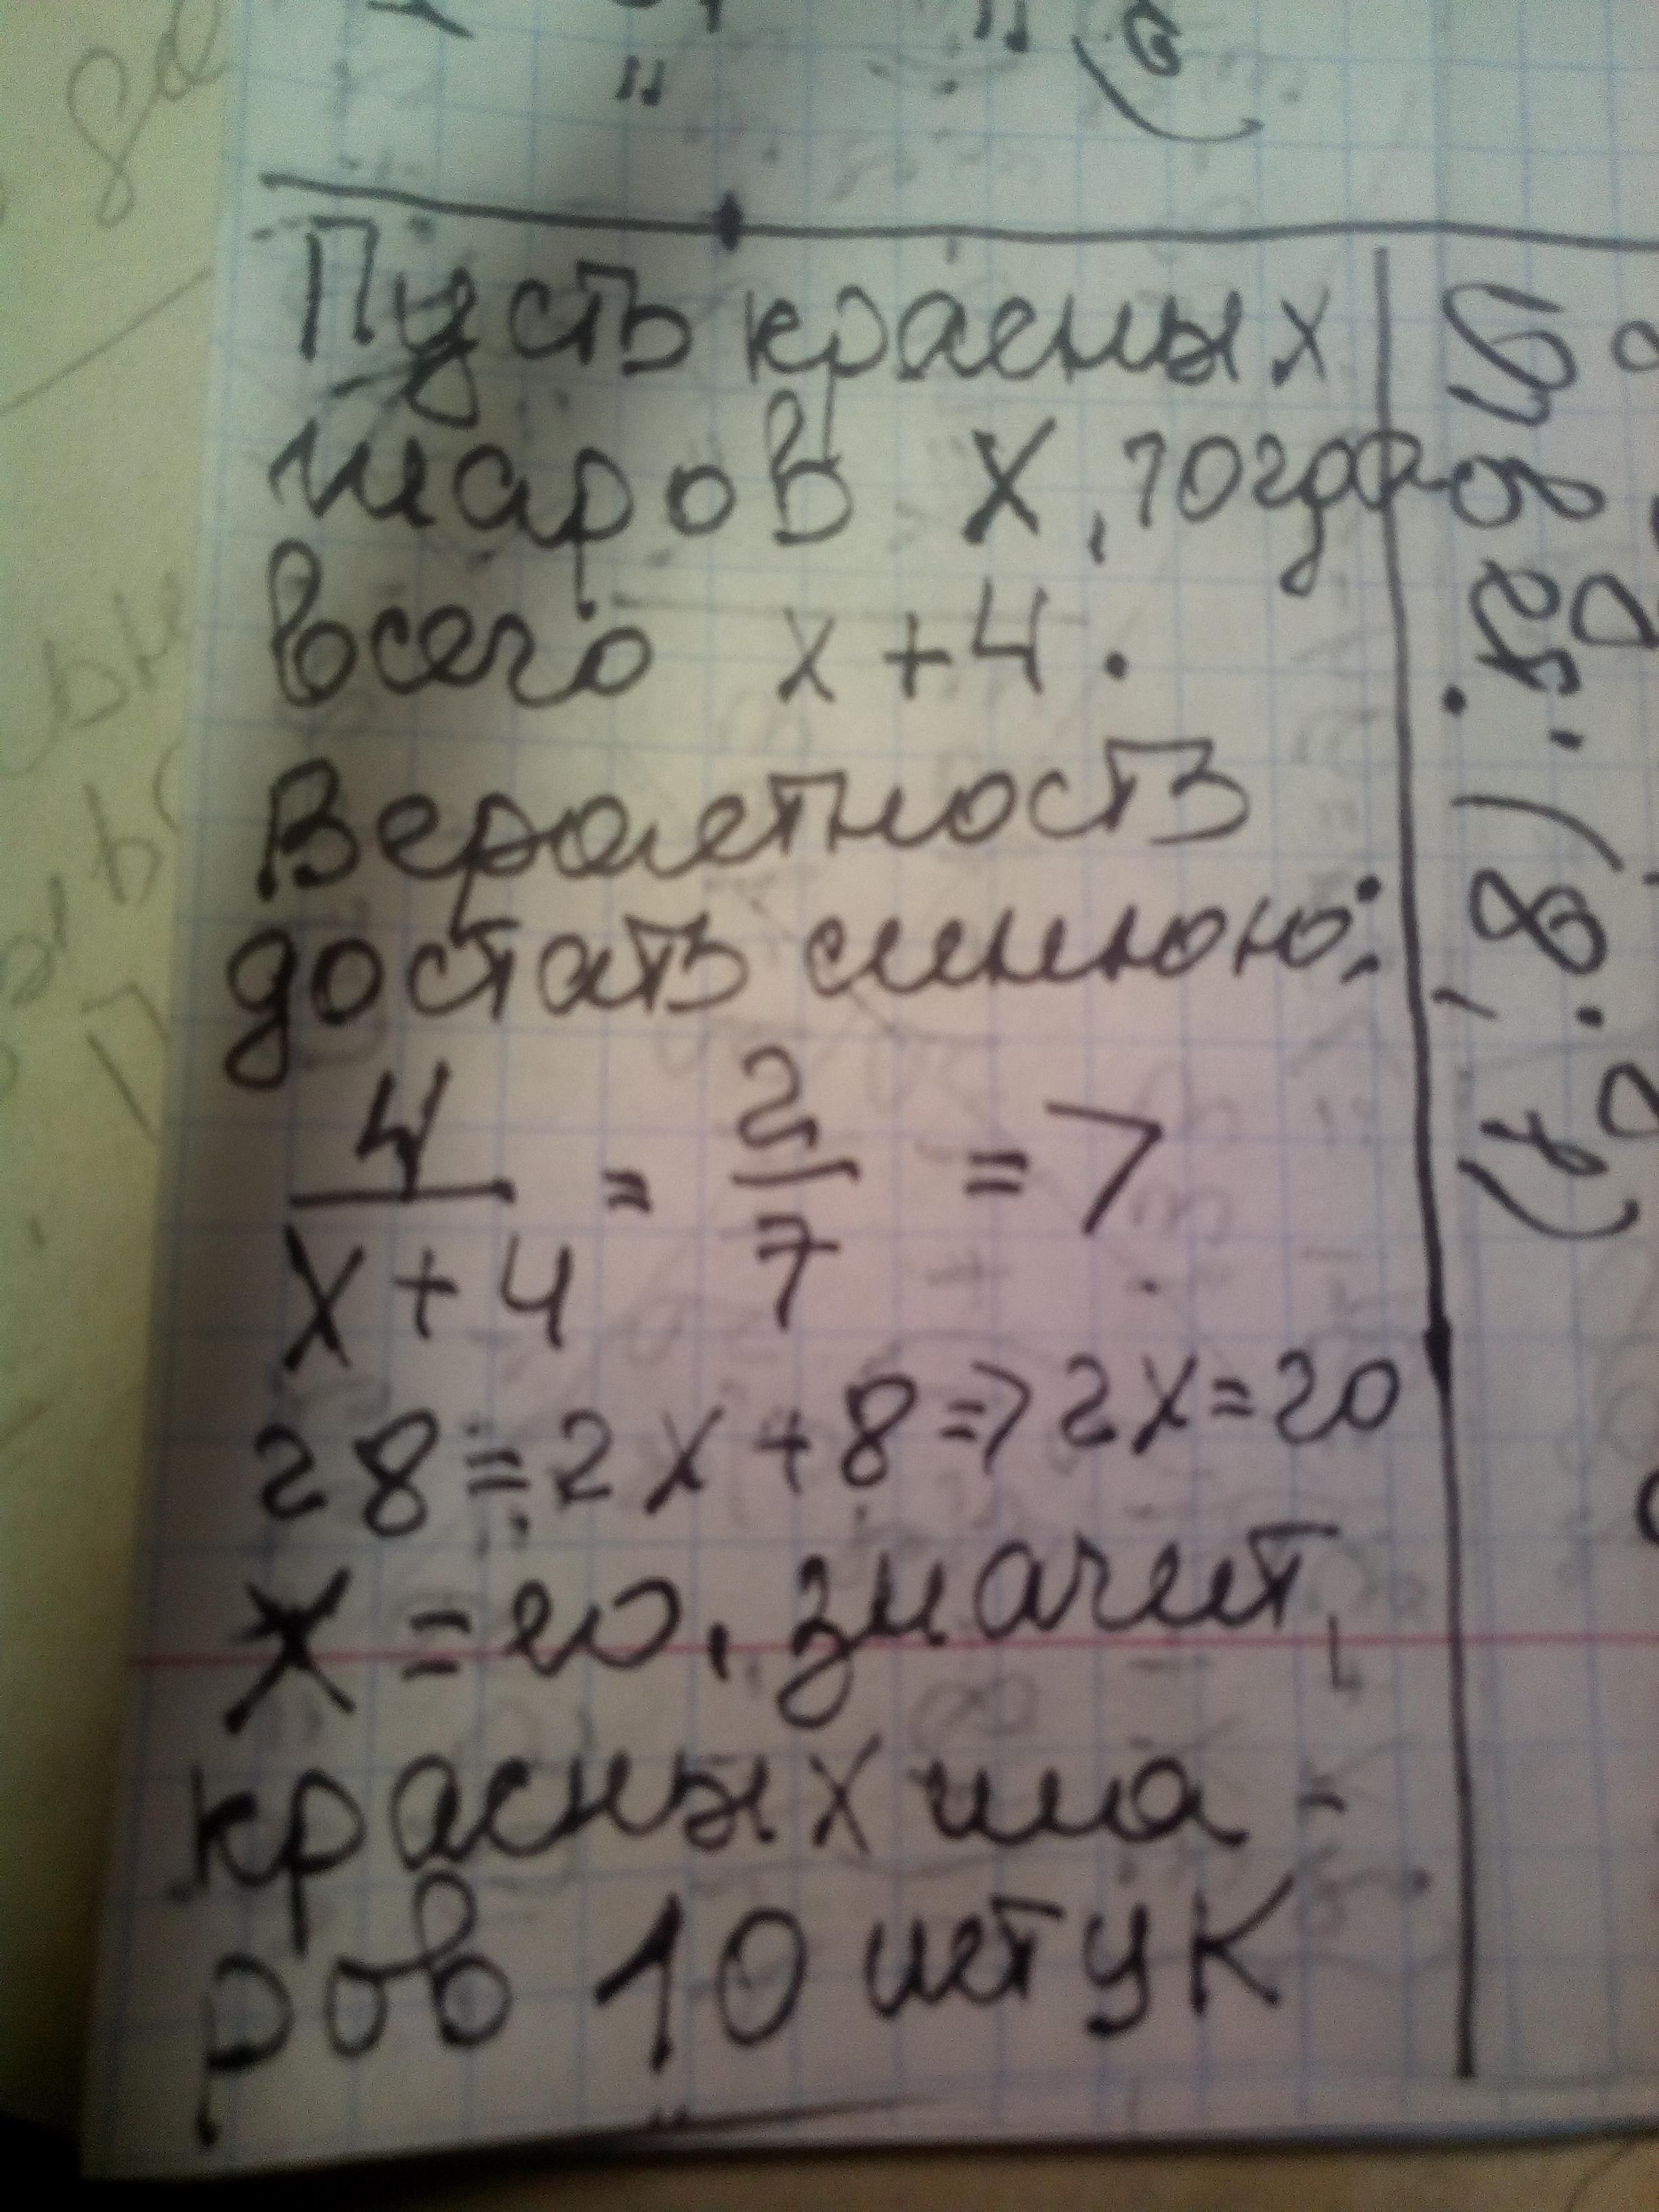 Пусть красных
шаров х, тогда
всего х+4.
Вероятность
достать синюю:
4/х+4 = 2/7 =>
28=2х+8=>2х=20
х=10, значит,
красных ша-
ров 10 штук